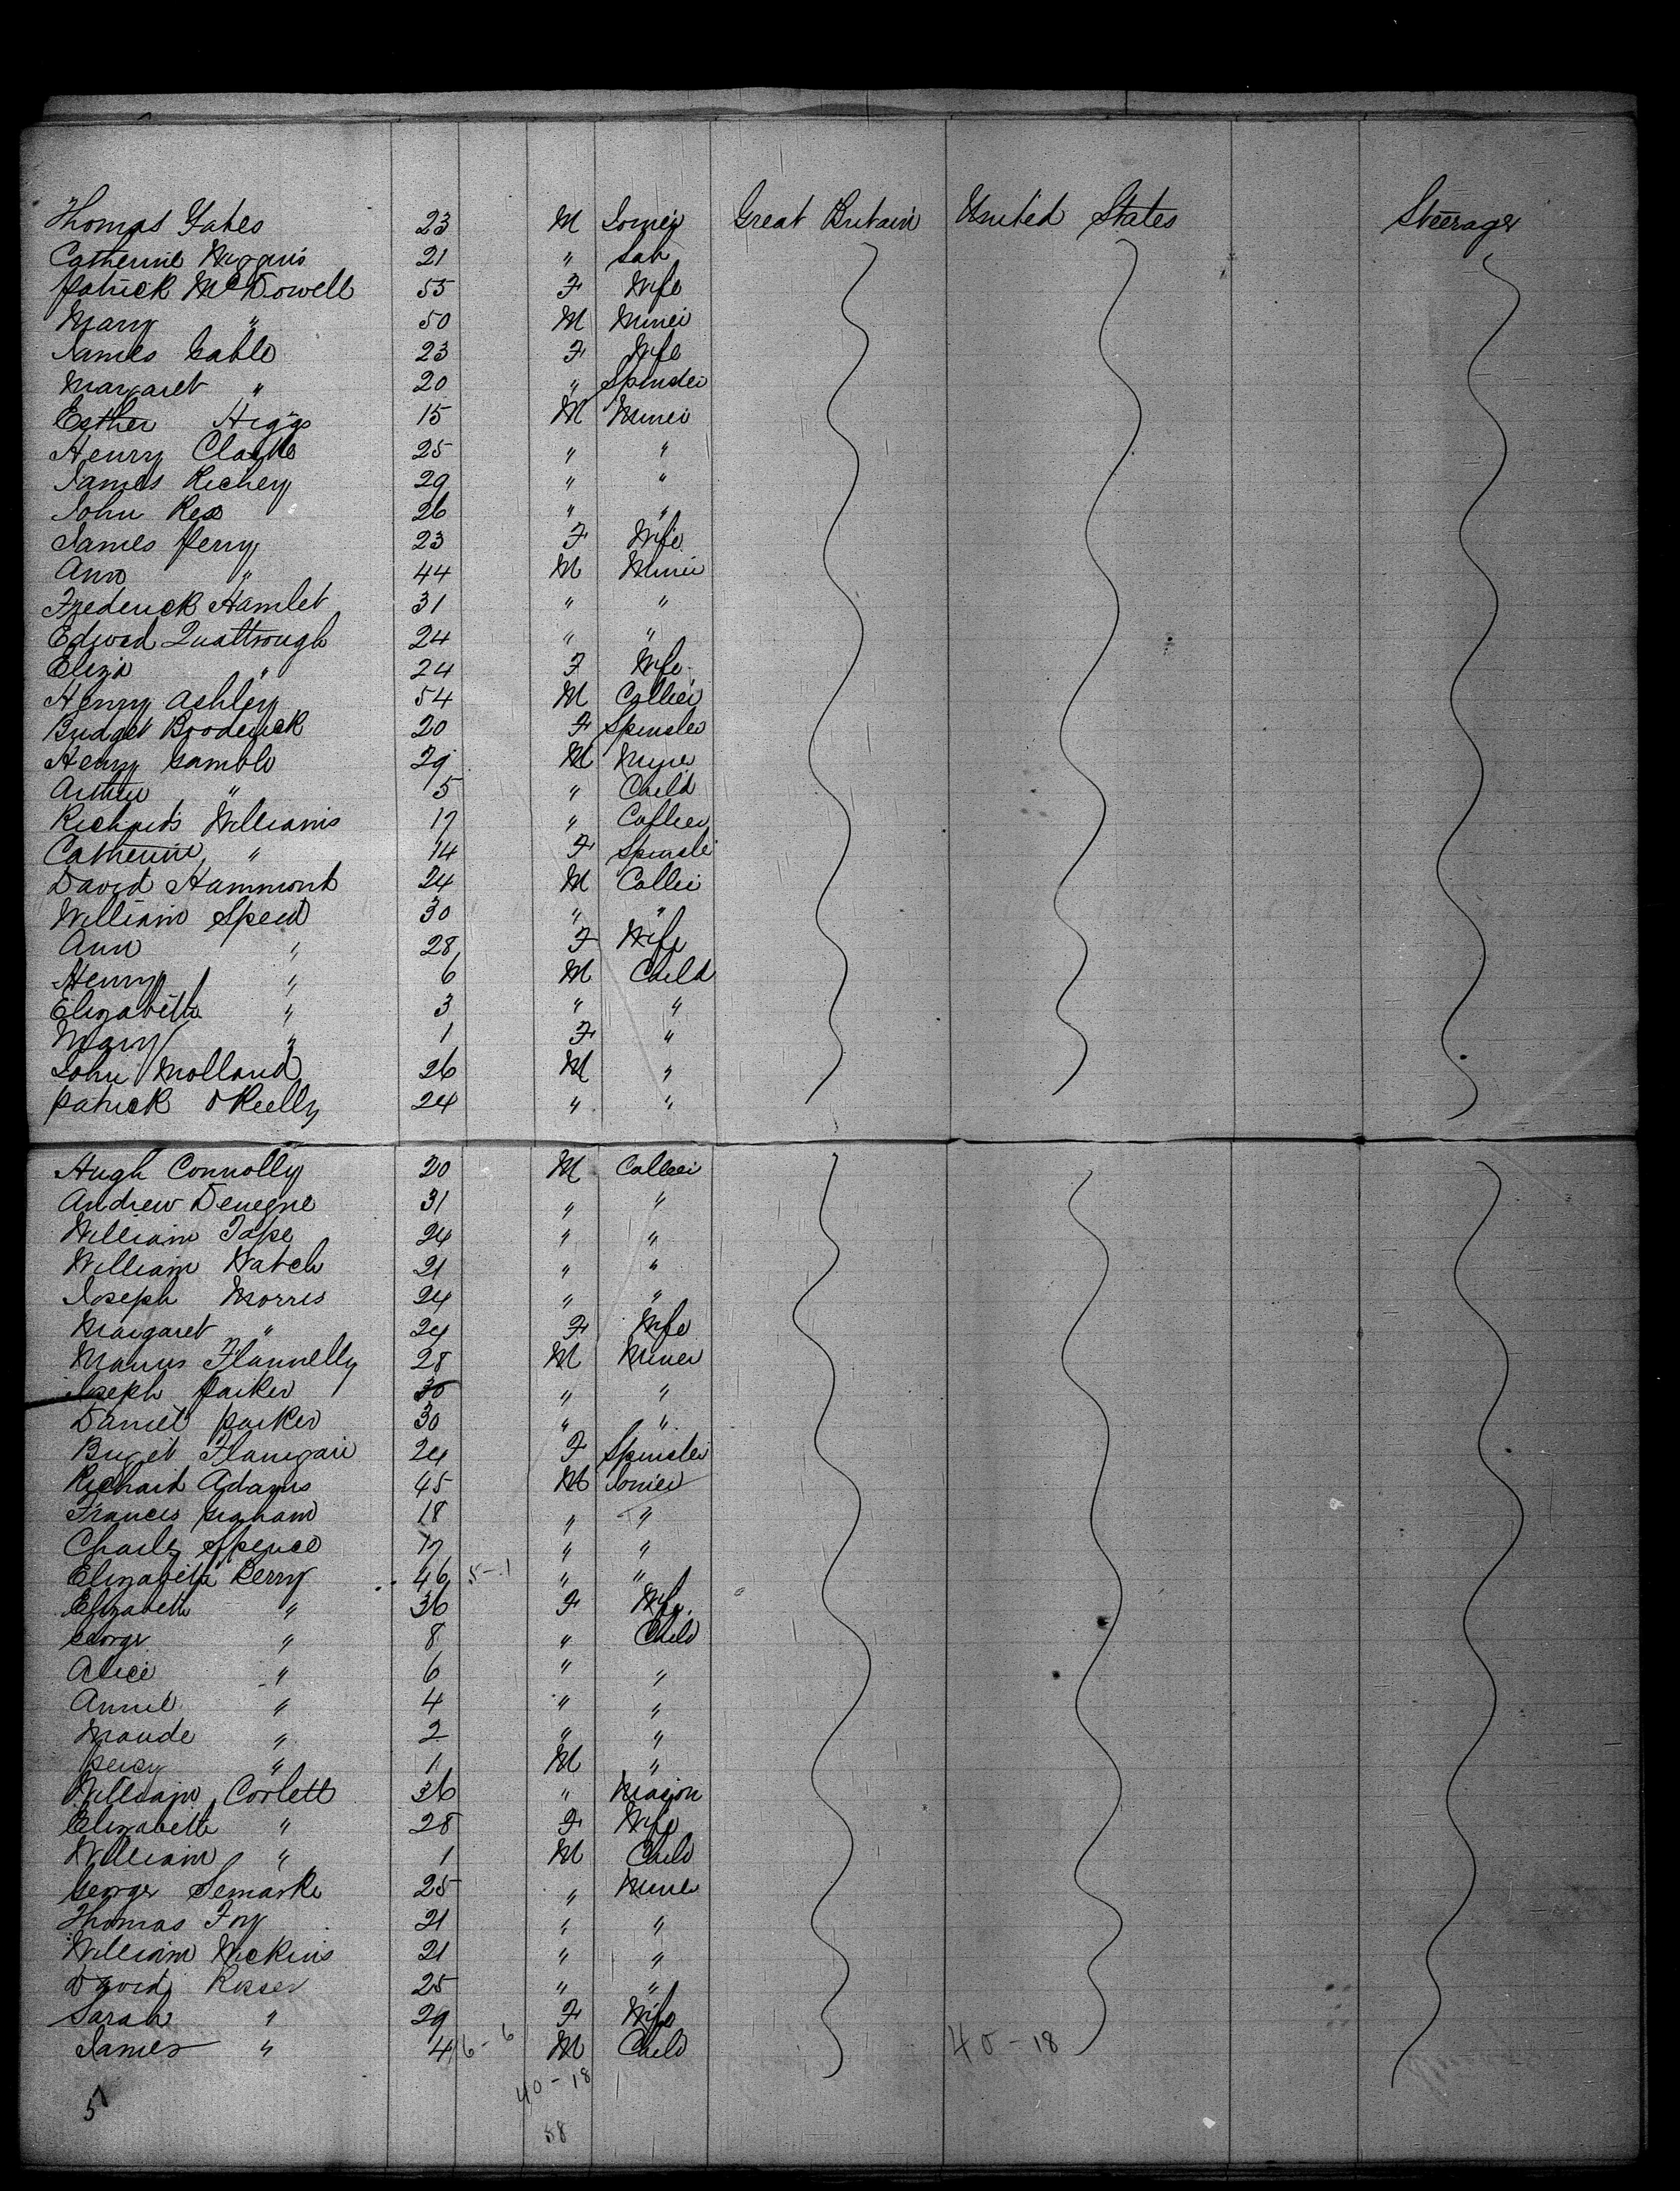 Thomas Yates 23 M Joiner Great Britain United States Steerage
Catherine Higgins 21 " Lab
Patrick McDowell 55 F Wife
Mary " 50 M Miner
James Gable 23 F Wife
Margaret " 20 " Spinster
Esther Higgs 15 M Miner
Henry Clarke 25 " "
James Richey 29 " "
John Rea 26 " "
James Perry 23 F Wife
Ann " 44 M Miner
Frederick Hamlet 31 " "
Edward Quattrough 24 " "
Eliza " 24 F Wife
Henry Ashley 54 M Collier
Bridget Broderick 20 F Spinster
Henry Gamble 29 M Miner
Arthur " 5 " Child
Richard Williams 17 " Collier
Catherine " 14 F Spinster
David Hammont 24 M Collier
William Speed 30 " "
Ann " 28 F Wife
Henry " 6 M Child
Elizabeth " 3 " "
Mary " 1 F "
John Molland 26 M "
Patrick O Reilly 24 " "
Hugh Connolly 20 M Collier
Andrew 31 " "
William Tape 24 " "
William 21 " "
Joseph Morris 24 " "
Margaret " 24 F Wife
Manus Flannelly 28 M Miner
Joseph Parker 30 " "
Daniel Parker 30 " "
Flanigan 24 F Spinster
Richard Adams 45 M Joiner
Francis Graham 18 " "
Charles Spence 17 " "
Elizabeth Berry 46 5-1 " "
Elizabeth " 36 F Wife
George " 8 " Child
Alice " 6 " "
Annie " 4 " "
Maude " 2 " "
Percy " 1 M "
William Corlett 36 " Mason
Elizabeth " 28 F Wife
William " 1 M Child
George Semarke 25 " Miner
Thomas Foy 21 " "
William Wickins 21 " "
David Rosser 25 " "
Sarah " 29 F Wife
James " 4 6-6 M Child 40-18
40-18
5
58